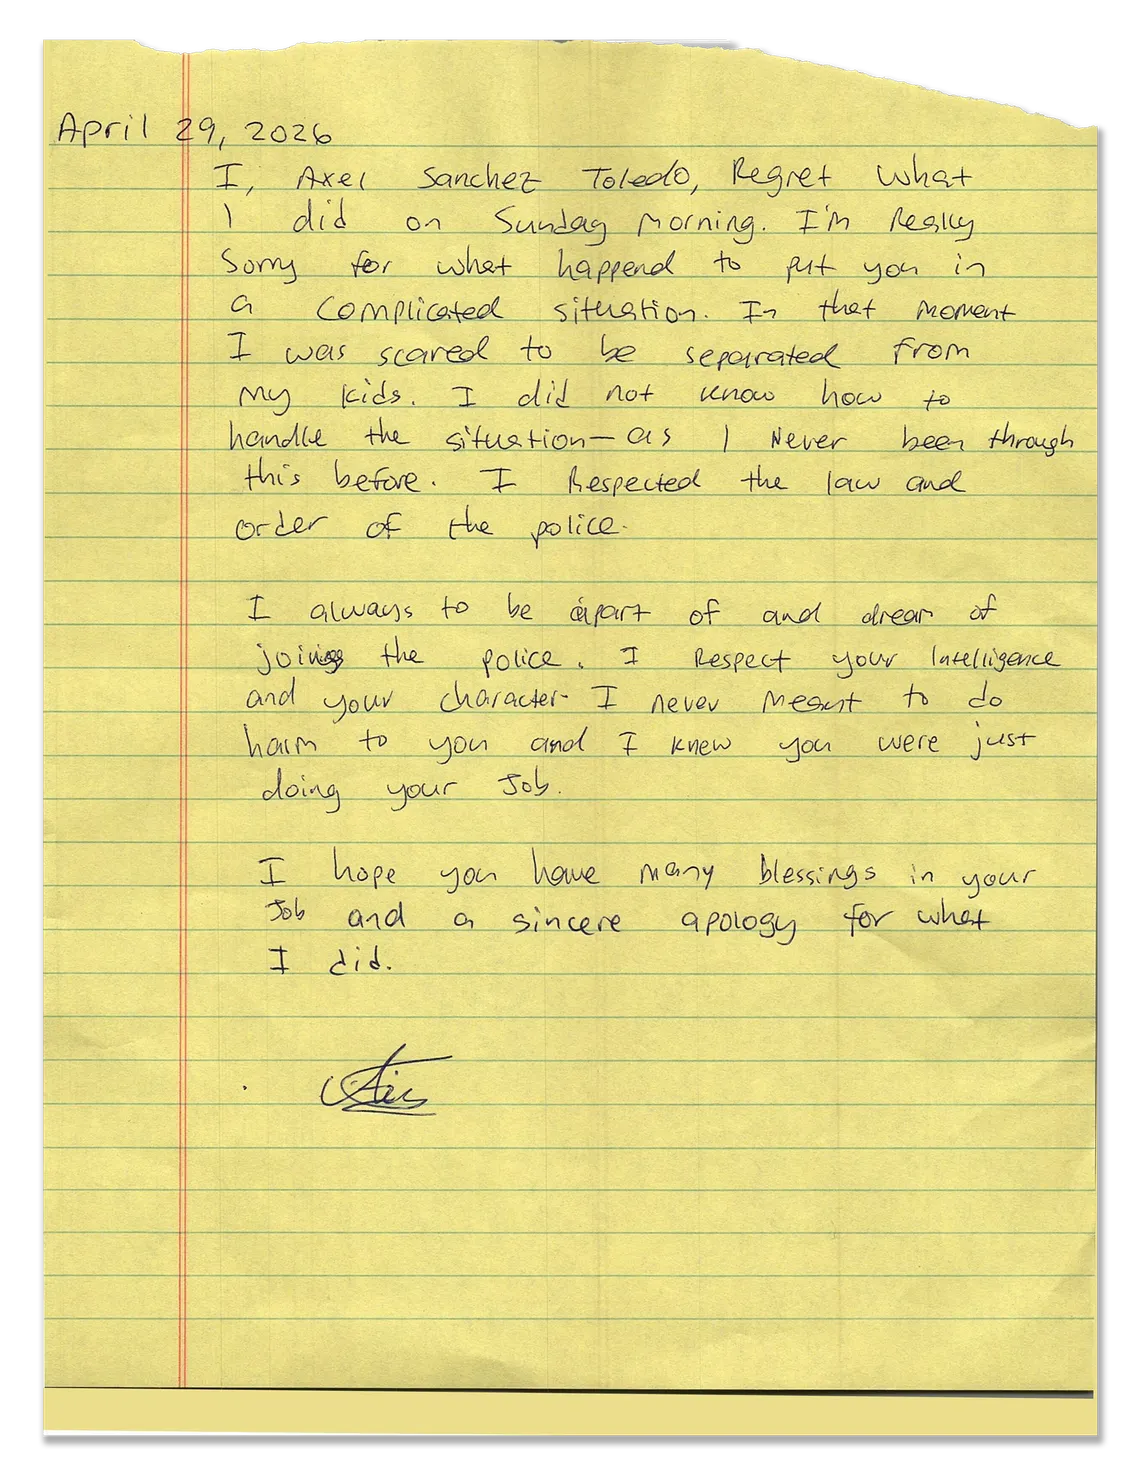 April 29, 2026
I, Axel Sanchez Toledo, Regret what
I did on Sunday Morning. I'm Really
Sorry for what happend to put you in
a complicated situation. In that moment
I was scared to be separated from
my kids. I did not know how to
handle the situation—as I Never been through
this before. I Respected the law and
order of the police.
I always to be apart of and dream of
joining the police. I Respect your Intelligence
and your character. I never meant to do
harm to you and I knew you were just
doing your Job.
I hope you have many blessings in your
Job and a sincere apology for what
I did.